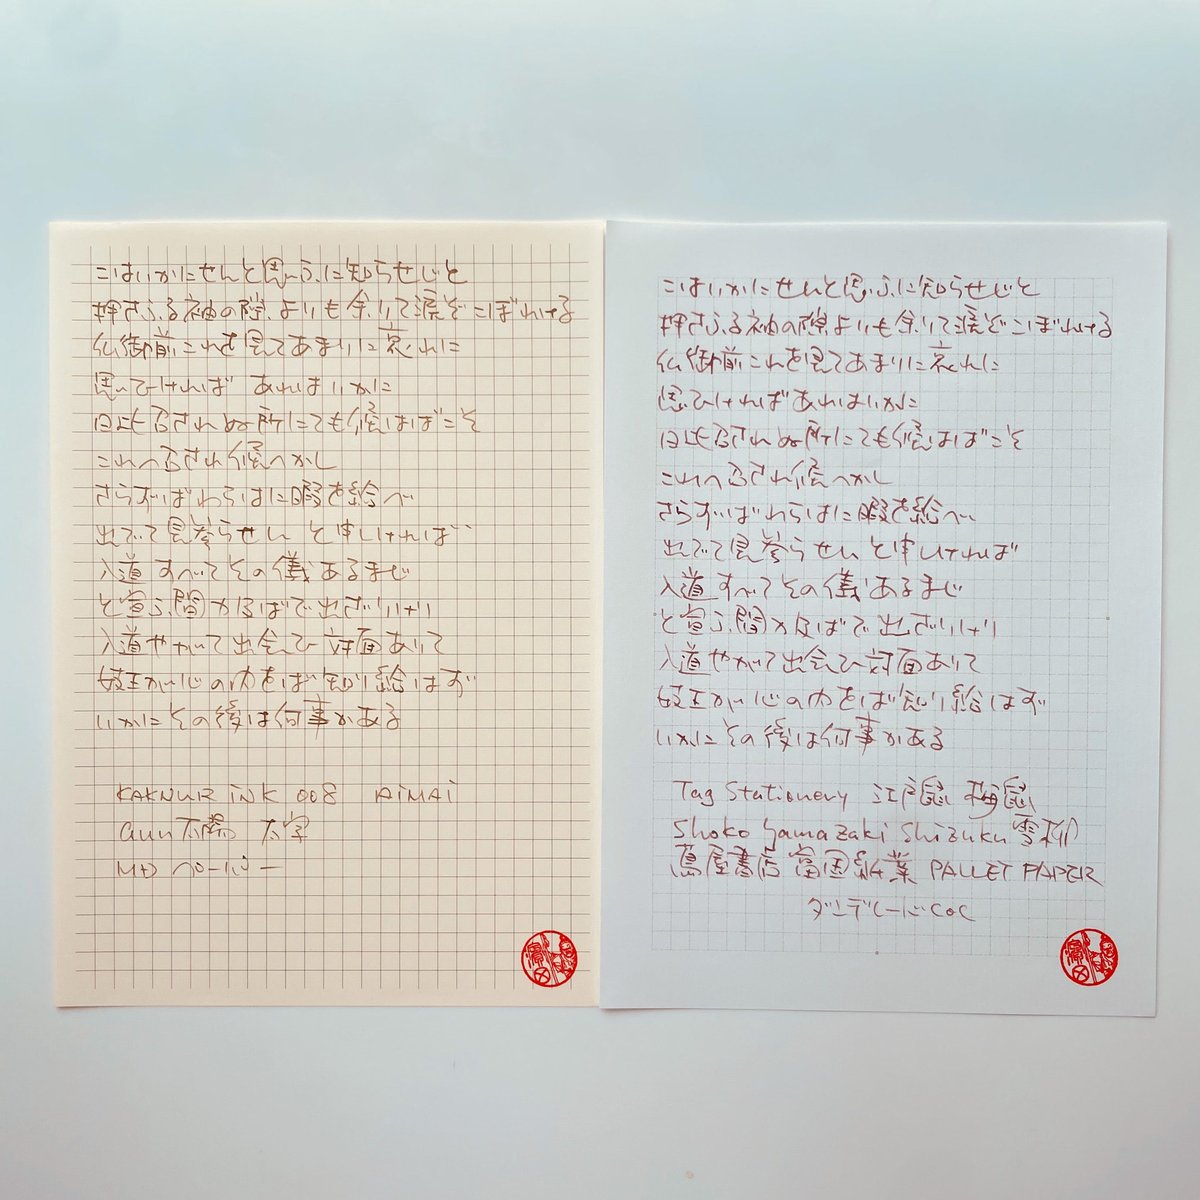 こはいかにせんと思ふに知らせじと
押さふる袖の隙よりも余りて涙ぞこぼれける
仏御前これを見てあまりに哀れに
思ひければ あれはいかに
日比召されぬ所にても候はばこそ
これへ召され候へかし
さらずばわらはに暇を給べ
出でて見参らせん と申しければ
入道すべてその儀あるまじ
と宣ふ間 力及ばで出ざりけり
入道やがて出会ひ 対面ありて
妓王が心の内をば知り給はず
いかにその後は何事かある
KAKNUR iNK 008 AiMAi
太字
MD ペーパー
こはいかにせんと思ふに知らせじと
押さふる袖の隙よりも余りて涙ぞこぼれける
仏御前これを見てあまりに哀れに
思ひければあれはいかに
日比召されぬ所にても候はばこそ
これへ召され候へかし
さらずばわらはに暇を給べ
出でて見参らせんと申しければ
入道すべてその儀あるまじ
と宣ふ間力及ばで出ざりけり
入道やがて出会ひ対面ありて
妓王が心の内をば知り給はず
いかにその後は何事かある
Tag Stationery 江戸鼠 梅鼠
Shoko Yamazaki Shizuku 雪柳
蔦屋書店 富国紙業 PALLET PAPER
ダンデレードCoC